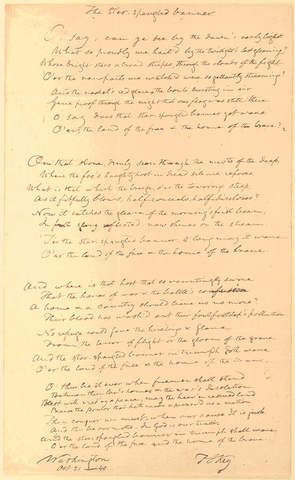 The Star-spangled banner
O! say, can ye see by the dawn's early light
What so proudly we hail'd by the twilight's last gleaming?
Whose bright stars & broad stripes, through the clouds of the fight
O'er the ramparts we watched were so gallantly streaming?
And the rocket's red glare, the bomb bursting in air
Gave proof through the night that our flag was still there
O! say, does that star-spangled banner yet wave
O'er the land of the free & the home of the brave?
On that shore, dimly seen through the mists of the deep,
Where the foe's haughty host in dread silence reposes
What is that which the breeze, o'er the towering steep
As it fitfully blows, half conceals, half discloses?
Now it catches the gleam of the morning's first beam,
In glory reflected now shines on the stream
'Tis the star-spangled banner O! long may it wave
O'er the land of the free & the home of the brave
And where is that host that so vauntingly swore
That the havoc of war & the battle's confusion
A home & a Country should leave us no more?
Their blood has wash'd out their foul footstep's pollution
No refuge could save the hireling & slave
From the terror of flight or the gloom of the grave
And the star-spangled banner in triumph doth wave
O'er the land of the free & the home of the brave.
O! thus be it ever when freemen shall stand
Between their lov'd homes & the war's desolation
Blest with vict'ry & peace, may the heav'n rescued land
Praise the power that hath made & preserved us a nation
Then conquer we must, when our cause it is just
And this be our motto In God is our trust
And the star-spangled banner in triumph shall wave
O'er the land of the free and the home of the brave
Washington
Oct 21 - 40
F S Key